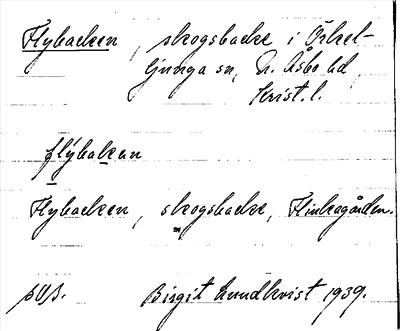 Flybacken, skogsbacke i Örkel-
ljunga sn, N. Åsbo hd,
Krist. l.
flýbakan
Flybacken, skogsbacke, Flinkagården.
Birgit Lundkvist 1939.